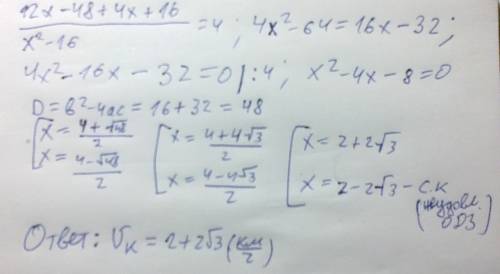 (12x-48+4x+16)/(x²-16) = 4 ; 4x²-64=16x-32 ;
4x²-16x-32=0 |:4 ; x²-4x-8=0
D=в²-4ac=16+32=48
[x=(4+√48)/2 [x=(4+4√3)/2 [x=2+2√3
x=(4-√48)/2 x=(4-4√3)/2 x=2-2√3-с.к
(неудовл. ОДЗ)
Ответ: Vк=2+2√3 (км/ч)